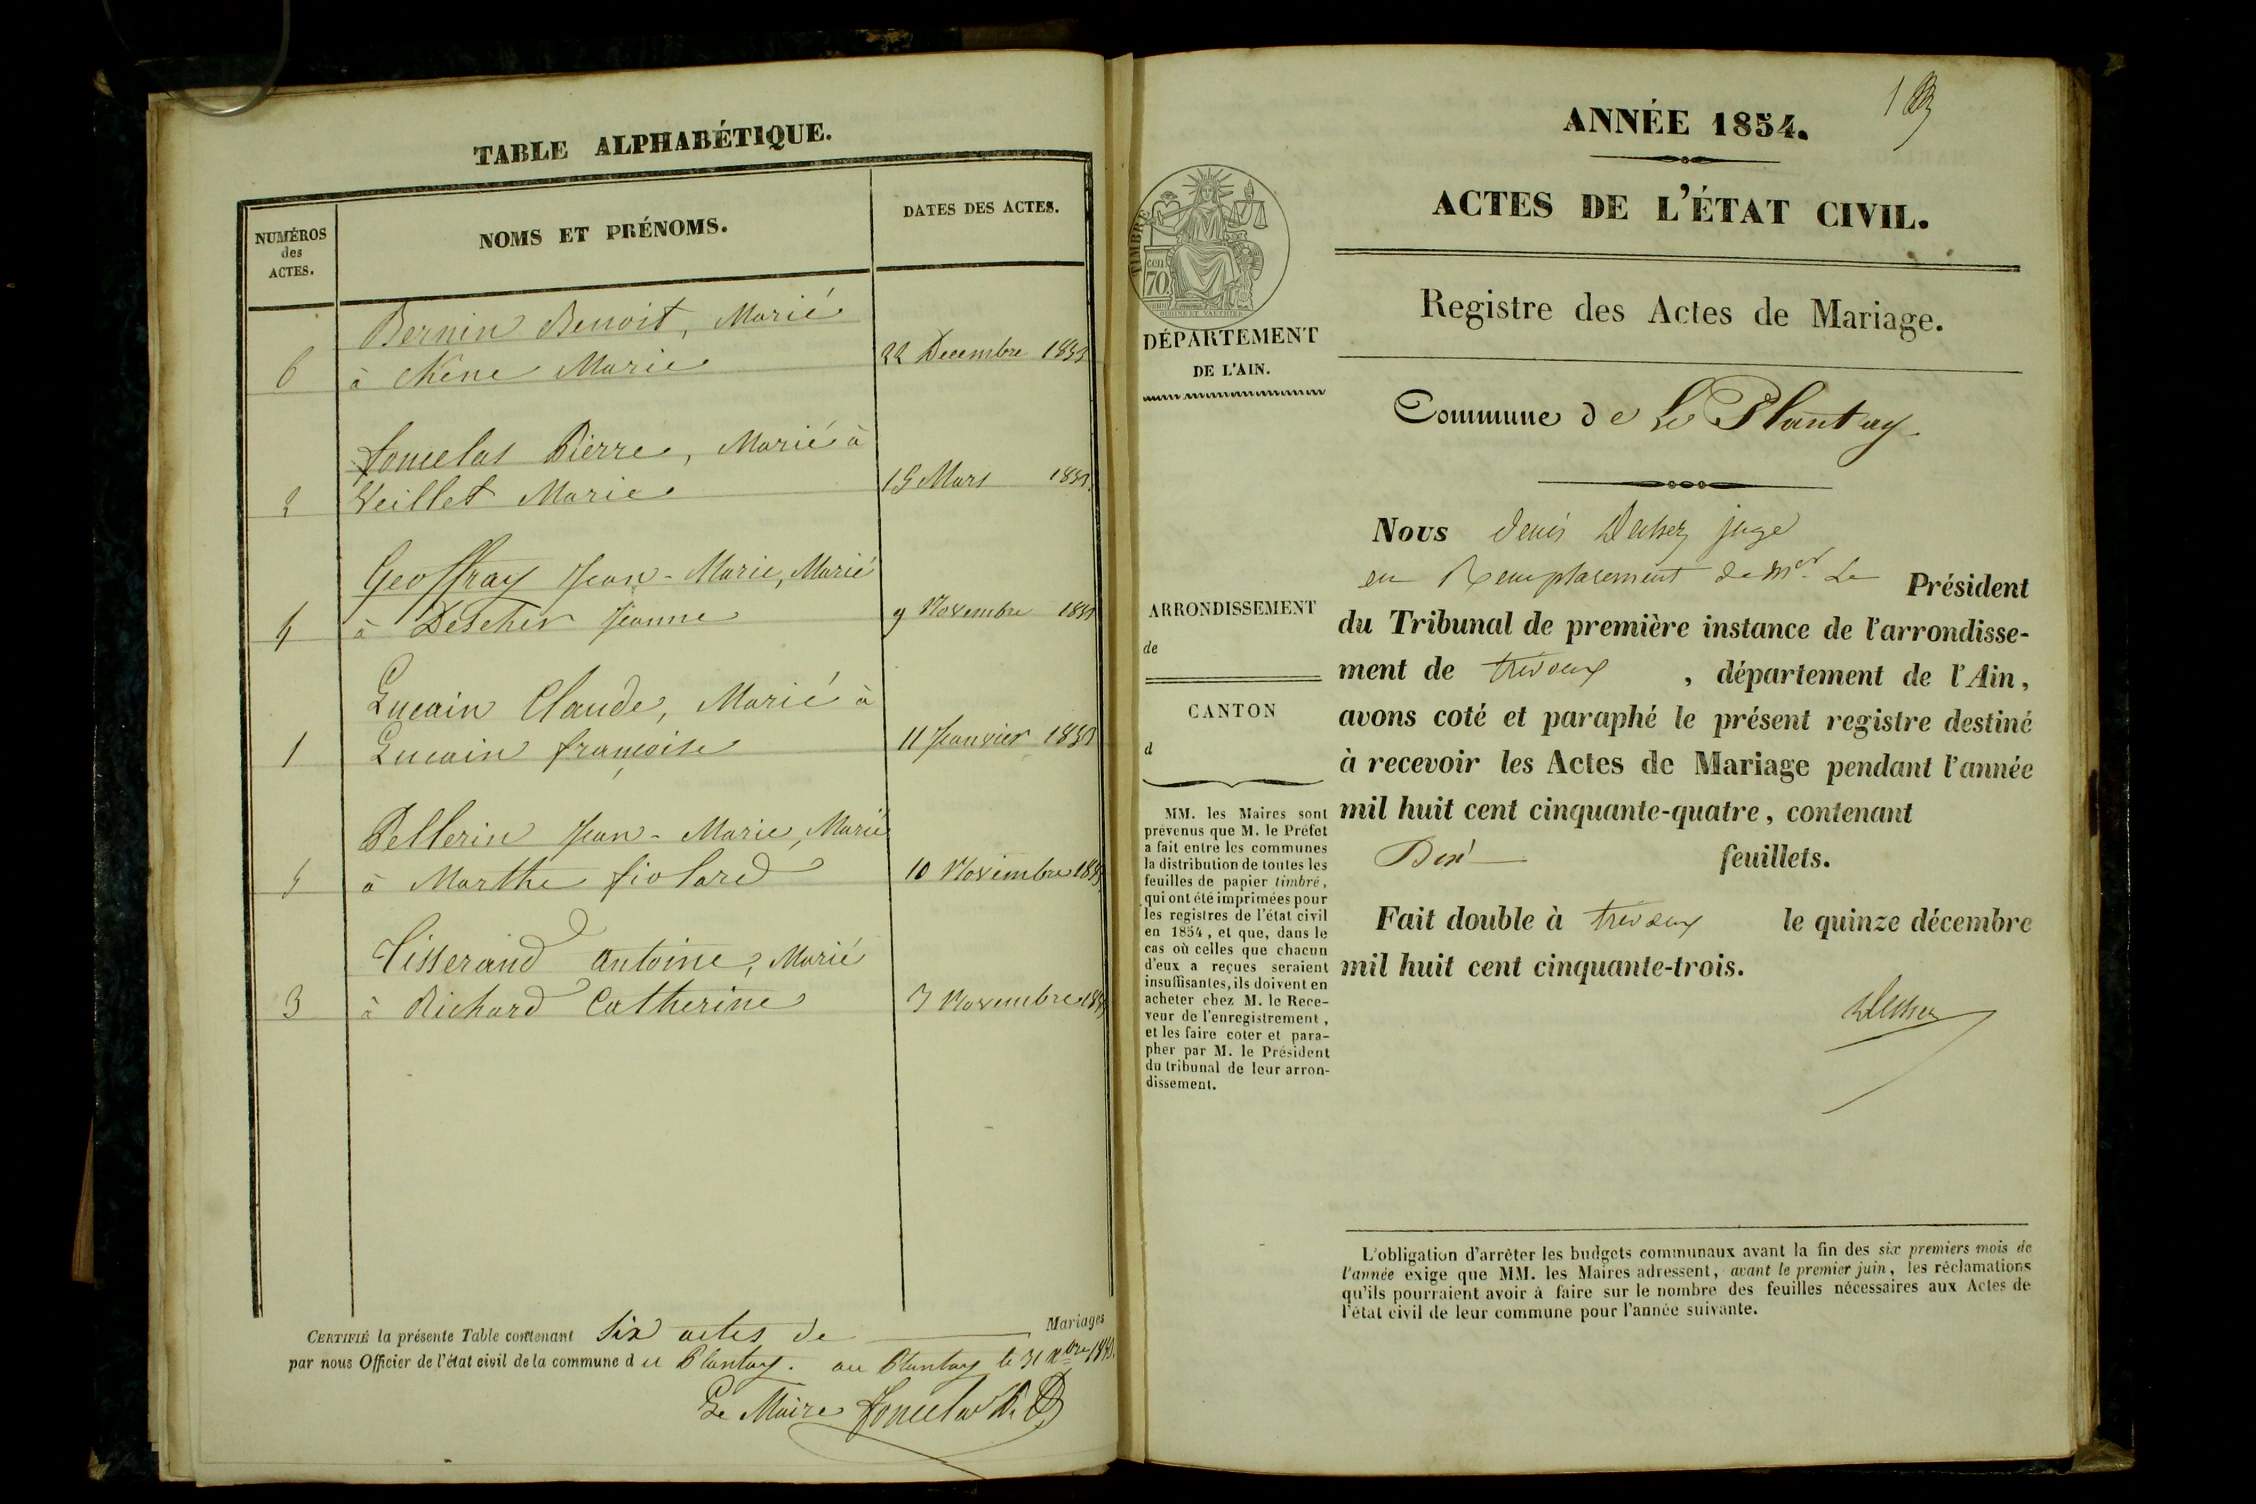 TABLE ALPHABÉTIQUE.
NUMÉROS
des
ACTES.
NOMS ET PRÉNOMS.
DATES DES ACTES.
Bernin Benoit, Marié
6 à Chêne Marie 22 Decembre 1853
Joncelas Pierre, Marié à
2 Veillet Marie 15 Mars 1853
Geoffray Jean-Marie, Marié
4 à Descher Jeanne 9 Novembre 1853
Lucain Claude, Marié à
1 Lucain françoise 11 Janvier 1853
Pellerin Jean-Marie, Marié
5 à Marthe fiolard 10 Novembre 1853
Tisserand antoine, Marié
3 à Richard Catherine 3 Novembre 1853
CERTIFIÉ la présente Table contenant Six actes de Mariages
par nous Officier de l'état civil de la commune du Plantay. au Plantay le 31 Xbre 1853.
Le Maire Joncelas
ANNÉE 1854.
ACTES DE L'ÉTAT CIVIL.
TIMBRE
cen
70
Registre des Actes de Mariage.
DÉPARTEMENT
DE L'AIN.
Commune de Le Plantay
ARRONDISSEMENT
de
CANTON
d
MM. les Maires sont
prévenus que M. le Préfet
a fait entre les communes
la distribution de toutes les
feuilles de papier timbré,
qui ont été imprimées pour
les registres de l'état civil
en 1854, et que, dans le
cas où celles que chacun
d'eux a reçues seraient
insuffisantes, ils doivent en
acheter chez M. le Rece-
veur de l'enregistrement,
et les faire coter et para-
pher par M. le Président
du tribunal de leur arron-
dissement.
Nous denis juge
en Remplacement de Mr. Le Président
du Tribunal de première instance de l'arrondisse-
ment de trevoux, département de l'Ain,
avons coté et paraphé le présent registre destiné
à recevoir les Actes de Mariage pendant l'année
mil huit cent cinquante-quatre, contenant
feuillets.
Fait double à trevoux le quinze décembre
mil huit cent cinquante-trois.
L'obligation d'arrêter les budgets communaux avant la fin des six premiers mois de
l'année exige que MM. les Maires adressent, avant le premier juin, les réclamations
qu'ils pourraient avoir à faire sur le nombre des feuilles nécessaires aux Actes de
l'état civil de leur commune pour l'année suivante.